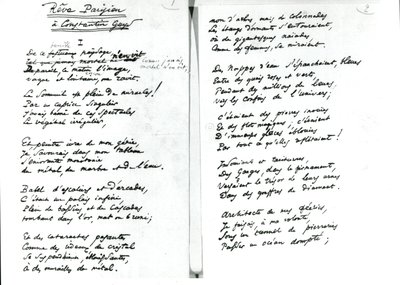 Rêve Parisien
à Constantin Guys
I
De ce terrible paysage,
mortel
Ce matin encore l'image,
vague et lointaine, me ravit.
Le Sommeil est plein de miracles !
Par un caprice singulier
J'avais banni de ces spectacles
Le végétal irrégulier,
Et, peintre fier de mon génie,
Je savourais dans mon tableau
L'enivrante monotonie
du métal, du marbre et de l'eau.
Babel d'escaliers et d'arcades,
C'était un palais infini,
Plein de bassins et de cascades
tombant dans l'or, mat ou bruni ;
Et des cataractes pesantes,
Comme des rideaux de cristal
Se suspendaient, éblouissantes,
A des murailles de métal.
2
non d'arbres, mais de colonnades
Les étangs dormants s'entouraient,
où de gigantesques naïades,
Comme des femmes, se miraient.
Des nappes d'eau s'épanchaient, bleues,
Entre des quais roses et verts,
Pendant des millions de lieues,
Vers les confins de l'univers ;
C'étaient des pierres inouïes
Et des flots magiques, c'étaient
D'immenses glaces éblouies
Par tout ce qu'elles reflétaient !
Insouciants et taciturnes
Des Ganges, dans le firmament,
Versaient le trésor de leurs urnes
Dans des gouffres de diamant.
Architecte de mes féeries,
Je faisais, à ma volonté,
Sous un tunnel de pierreries
Passer un océan dompté ;